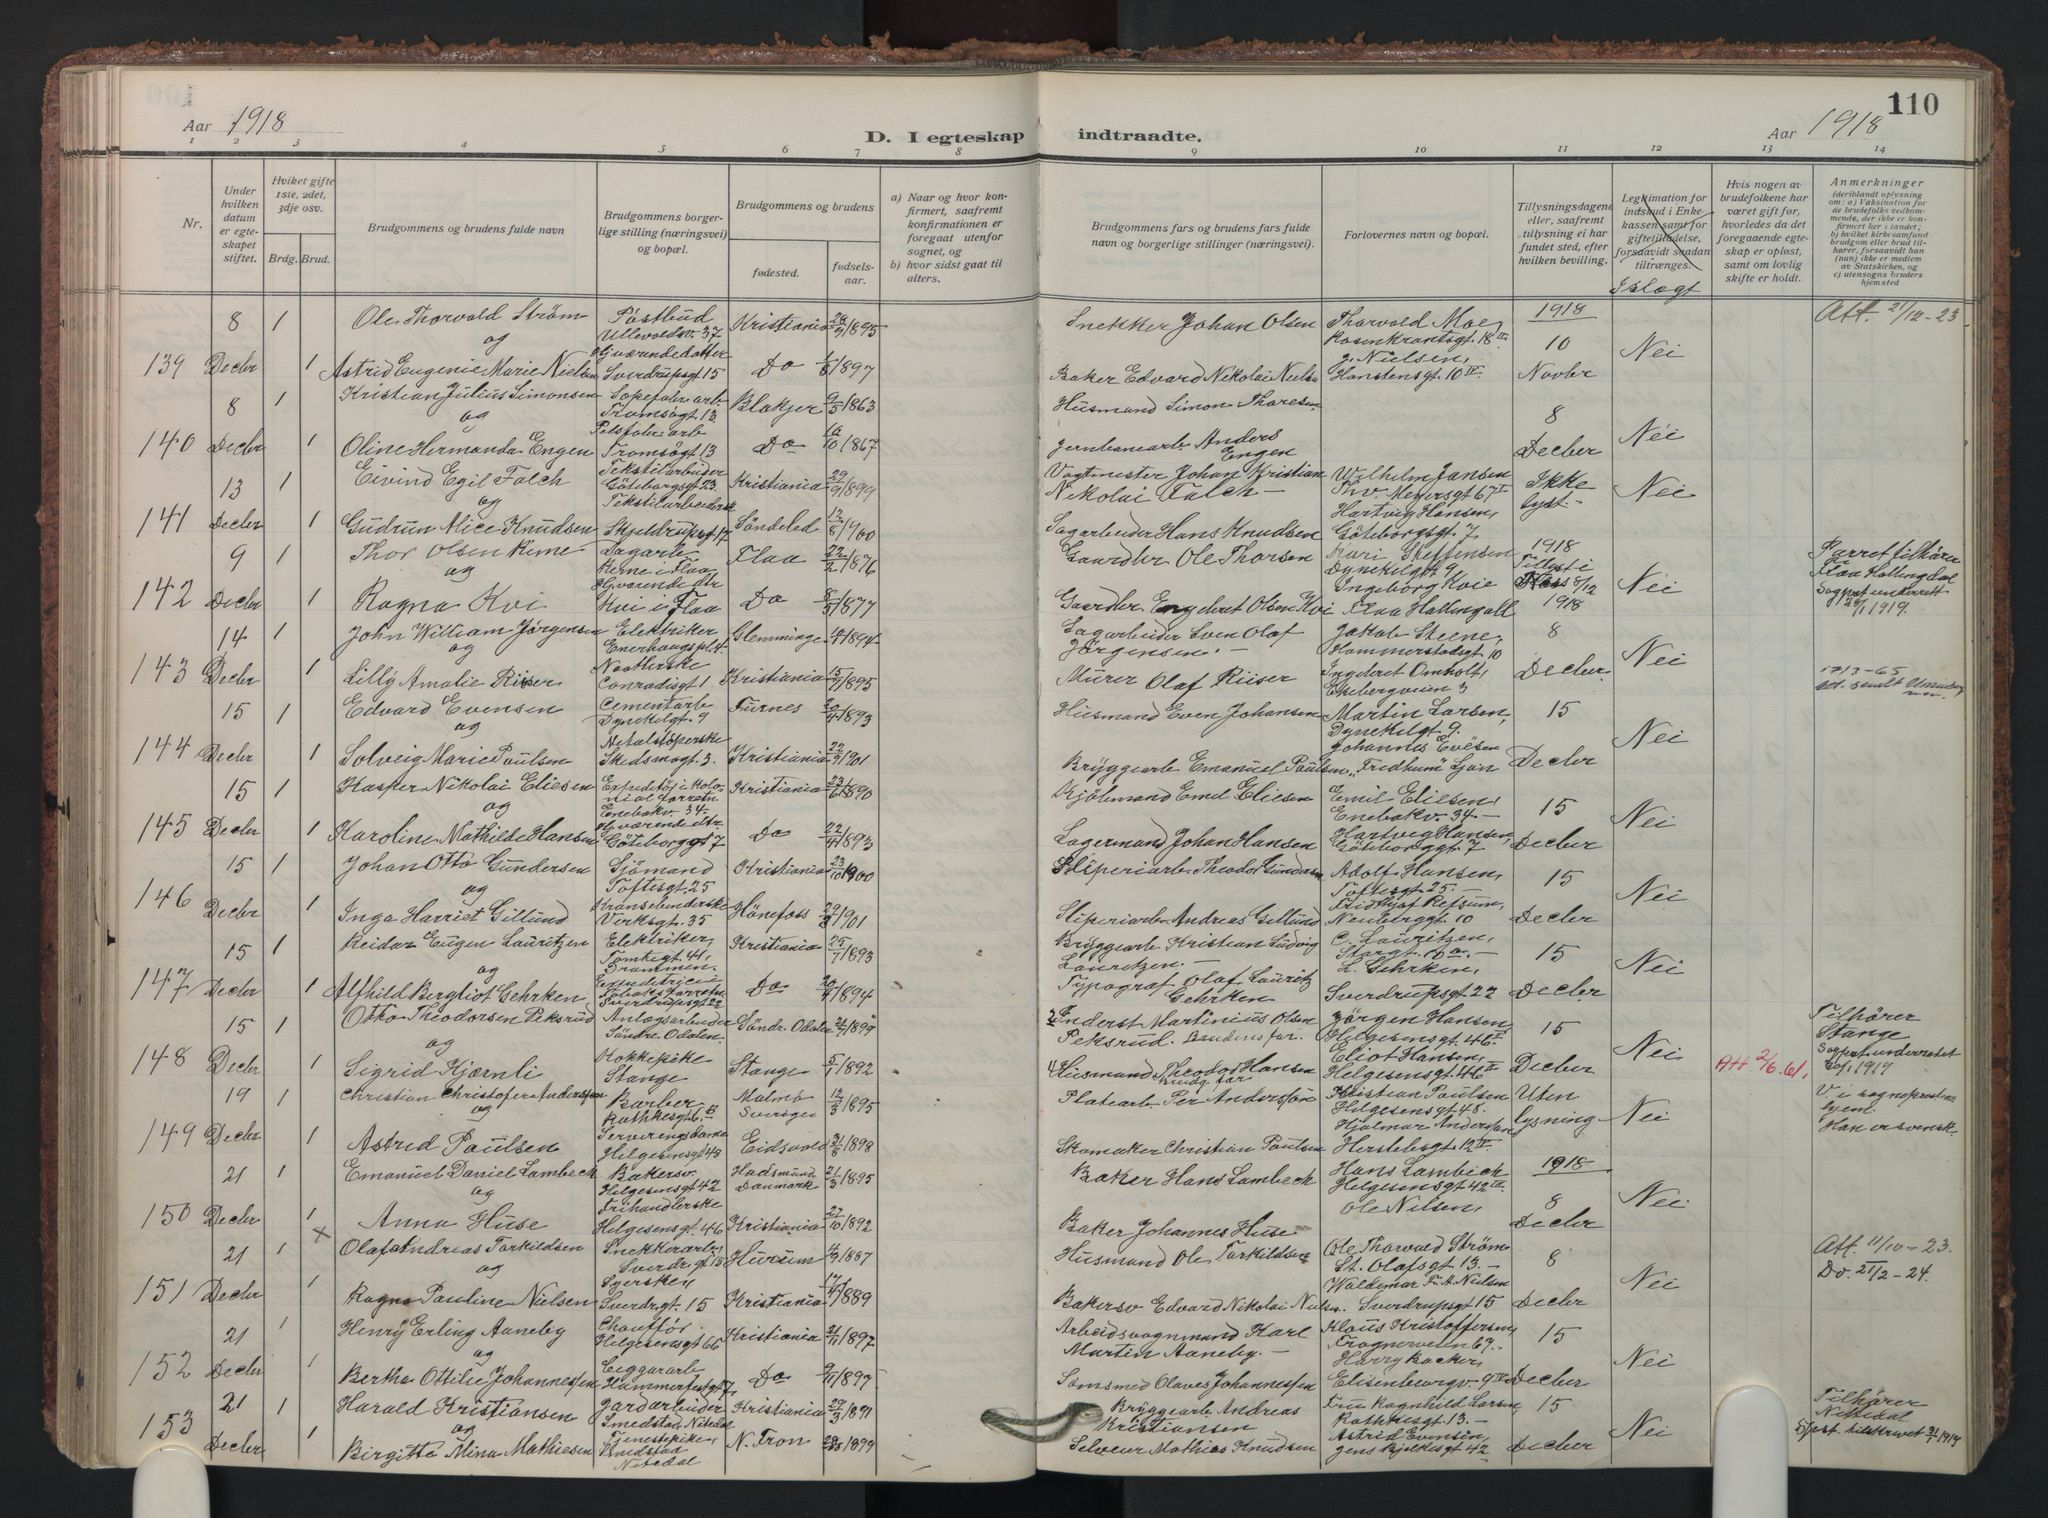 Aar 1918
D. I egteskap indtraadte.
Aar 1918
110
1 2 3 4 5 6 7 8 9 10 11 12 13 14
Nr.
Under hvilken datum er egteskapet stiftet.
Hviket gifte 1ste, 2det, 3dje osv.
Brdg. Brud.
Brudgommens og brudens fulde navn
Brudgommens borgerlige stilling (næringsvei) og bopæl.
Brudgommens og brudens
fødested.
fødselsaar.
a) Naar og hvor konfirmert, saafremt konfirmationen er foregaat utenfor sognet, og
b) hvor sidst gaat til alters.
Brudgommens fars og brudens fars fulde navn og borgerlige stillinger (næringsvei).
Forlovernes navn og bopæl.
Tillysningsdagene eller, saafremt tillysning ei har fundet sted, efter hvilken bevilling.
Legitimation for indskud i Enkekassen samt for giftetilladelse, forsaavidt saadan tiltrænges.
I slegt
Hvis nogen av brudefolkene har været gift før, hvorledes da det foregaaende egteskap er opløst, samt om lovlig skifte er holdt.
Anmerkninger
(deriblandt oplysning om: a) Vaksination for de brudefolks vedkommende, der ikke er konfirmert her i landet; b) hvilket kirkesamfund brudgom eller brud tilhører, forsaavidt han (hun) ikke er medlem av Statskirken, og c) utensogns bruders hjemsted
139 8 Decbr 1 1
Ole Thorvald Strøm og
Astrid Eugenie Marie Nielsen
Postbud Ullevoldsv. 37
Hjværende datter Sverdrupsgt 15
Kristiania 28/9 1895
Do 1/6 1897
Snekker Johan Olsen
Baker Edvard Nikolai Nielsen
Thorvald Moe, Rosenkrantsgt. 18 II
J. Nielsen, Hanstensgt. 10 IV
1918 10 Novbr
Nei
Att. 21/12-23
140 8 Decbr 1 1
Kristian Julius Simonsen og
Oline Hermanda Engen
Tromsøgt. 13
Tromsøgt 13
Blakjer 9/5 1863
Do 16/10 1867
Husmand Simon Thoresen
Jernbanearb. Anders Engen
8 Decber
Nei
141 13 Decbr 1 1
Eivind Egil Falch og
Gudrun Alice Knudsen
Tekstilarbeider Göteborgsgt 23
Tekstilarbeidersk Skjeldrupsgt 17
Kristiania 29/9 1899
Söndeled 12/8 1900
Vagtmester Johan Kristian Nikolai Falch
Sagarbeider Hans Knudsen
Wilhelm Jansen Thv. Meyersgt 67 II
Hartvig Hansen, Göteborgsgt. 7
Ikke lyst
Nei
142 9 Decbr 1 1
Thor Olsen Rime og
Ragna Kvi
Sagarb. i Flaa
Hjværende dtr Kvi i Flaa
Flaa 22/2 1876
Do 8/3 1877
Gaardbr Ole Thorsen
Gaardbr. Engebret Olsen Kvi
Mari Steffensen Dynekilgt 9
Ingeborg Kvie Flaa Hallingdal
1918 Tillyst i 8/12 1918
Nei
Parret tilhörer Flaa Hallingdal
Sogpr. underrett 1919.
143 14 Decbr 1 1
John William Jörgensen og
Lilly Amalie Riiser
Elektriker Enerhaugspl 4
Conradisgt 1
Glemminge 1894
Kristiania 15/9 1895
Sagarbeider Sven Olaf Jörgensen.
Murer Olaf Riiser
Jakob Steene, Hammerstadsgt 10
Ingebret Omholt, Ekebergveien 3
8 Decber.
Nei
1713-65
144 15 Decbr 1 1
Edvard Evensen og
Solveig Marie Paulsen
Cementarb Dynekilgt. 9
Skedsmogt. 3.
Furnes 20/4 1893
Kristiania 22/9 1901
Husmand Even Johansen
Bryggearb Emanuel Paulsen
Martin Larsen, Dynekilgt 9.
Johannes Evesen "Fredhum" Ljan
15 Decbr
Nei
145 15 Decbr 1 1
Kasper Nikolai Eliesen og
Karoline Mathilde Hansen
Expeditör i Kolonialforretn. Enebakv. 34.
Hjværende dtr Göteborggt 7
Kristiania 23/6 1890
Do 22/4 1893
Kjöbmand Emil Eliesen
Lagermand Johan Hansen
Emil Eliesen, Enebakv. 34.
Hartvig Hansen, Göteborggt. 7
15 Decber
Nei
146 15 Decbr 1 1
Johan Otto Gundersen og
Inga Harriet Gillund
Sjömand Toftesgt. 25
Kransebinderske Verksgt. 35
Kristiania 23/10 1900
Hönefoss 29/8 1901
Sliperiarb. Theodor Gundersen
Sliperiarb Andreas Gillund
Adolf Hansen, Toftesgt 25.
Fridtjof Refsum, Neuberggt. 10
15 Decber
Nei
147 15 Decbr 1 1
Reidar Eugen Lauritzen og
Alfhild Bergliot Gehrken
Elektriker, Tomtegt 41, Drammen.
Expeditrice i Tobaksforretn Sverdrupsgt 22
Kristiania 25/7 1893
Do 20/4 1894
Bryggearb Kristian Ludvig Lauritzen.
Typograf Olaf Lauritz Gehrken
C. Lauritzen, Storgt. 10 a.
L. Gehrken, Sverdrupsgt 22
15 Decber
Nei
148 15 Decbr 1 1
Otto Theodorsen Peksrud og
Sigrid Kjærnli
Anlægsarbeider Söndre Odalen.
Kokkepike Stange
Söndr. Odalen 1899
Stange 5/1 1892
Inderst Martinius Olsen Peksrud. Brudens far.
Husmand Theodor Hansen Brudg. far
Jörgen Hansen, Helgesensgt. 46 II
Eliot Hansen, Helgesensgt 46 II
15 Decber
Nei
Att 2/6.61.
Tilhörer Stange
Sogpr. underrettet 1919
149 19 Decbr 1 1
Christian Christofer Anderssön og
Astrid Paulsen
Barber Rathkesgt 6 B
Serveringsdame Helgesensgt 48
Malmö Sverige 12/3 1895
Eidsvold 31/8 1898
Platearb. Per Anderssön
Skomaker Christian Paulsen
Kristian Paulsen Helgesensgt 48.
Hjalmar Anderssen, Herslebsgt. 12 IV
Uten lysning
Nei
V i sogneprestens hjem.
Han er svensk.
150 21 Decbr 1 1
Emanuel Daniel Lambech og
Anna Huse
Bakersv. Helgesensgt 42
Frihandlerske Helgesensgt 46
Hadsund Danmark 21/3 1895
Kristiania 27/10 1892
Baker Hans Lambech
Baker Johannes Huse
Hans Lambech Helgesensgt 42 IV
Ole Nilsen,
1918 8 Decbr
Nei
151 21 Decbr 1 1
Olaf Andreas Torkildsen og
Ragna Pauline Nielsen
Snekkerarb. Sverdr.gt 15
Syerske, Sverdrgt. 15
Hurum 4/9 1887
Kristiania 17/4 1889
Husmand Ole Torkildsen
Bakersv Edvard Nikolai Nielsen.
Ole Thorvald Ström St. Olafsgt 13.
Waldemar Fr. A. Nielsen Sverdrupsgt 15
8 Decber
Nei
Att. 11/10-23.
Do. 21/2-24.
152 21 Decbr 1 1
Henry Erling Aaneby og
Bertha Ottilie Johannessen
Chauffør Helgesensgt 66
Ciggararb Hammerfestgt 7
Kristiania 21/11 1897
Do 9/11 1897
Arbeidsvognmand Karl Martin Aaneby.
Olaves Johannessen
Klaus Kristoffersen, Frognerveien 67.
Harry Backer, Elisenbergv. 9 IV
15 Decber
Nei
153 21 Decbr 1 1
Harald Kristiansen og
Birgitte Mina Mathiesen
Jordarbeider Smedstad, Nitedal
Tjenestepike, Smedstad Nitedal
Kristiania 29/3 1891
N. Fron 1899
Bryggearb Andreas Kristiansen
Mathias Knudsen
Fru Ragnhild Larsen, Rathkesgt 13.
Astrid Evensen, Jens Bjelkesgt 42
15 Decber
Nei
Tilhörer Nittedal
S/pst. tilskrevet 1919